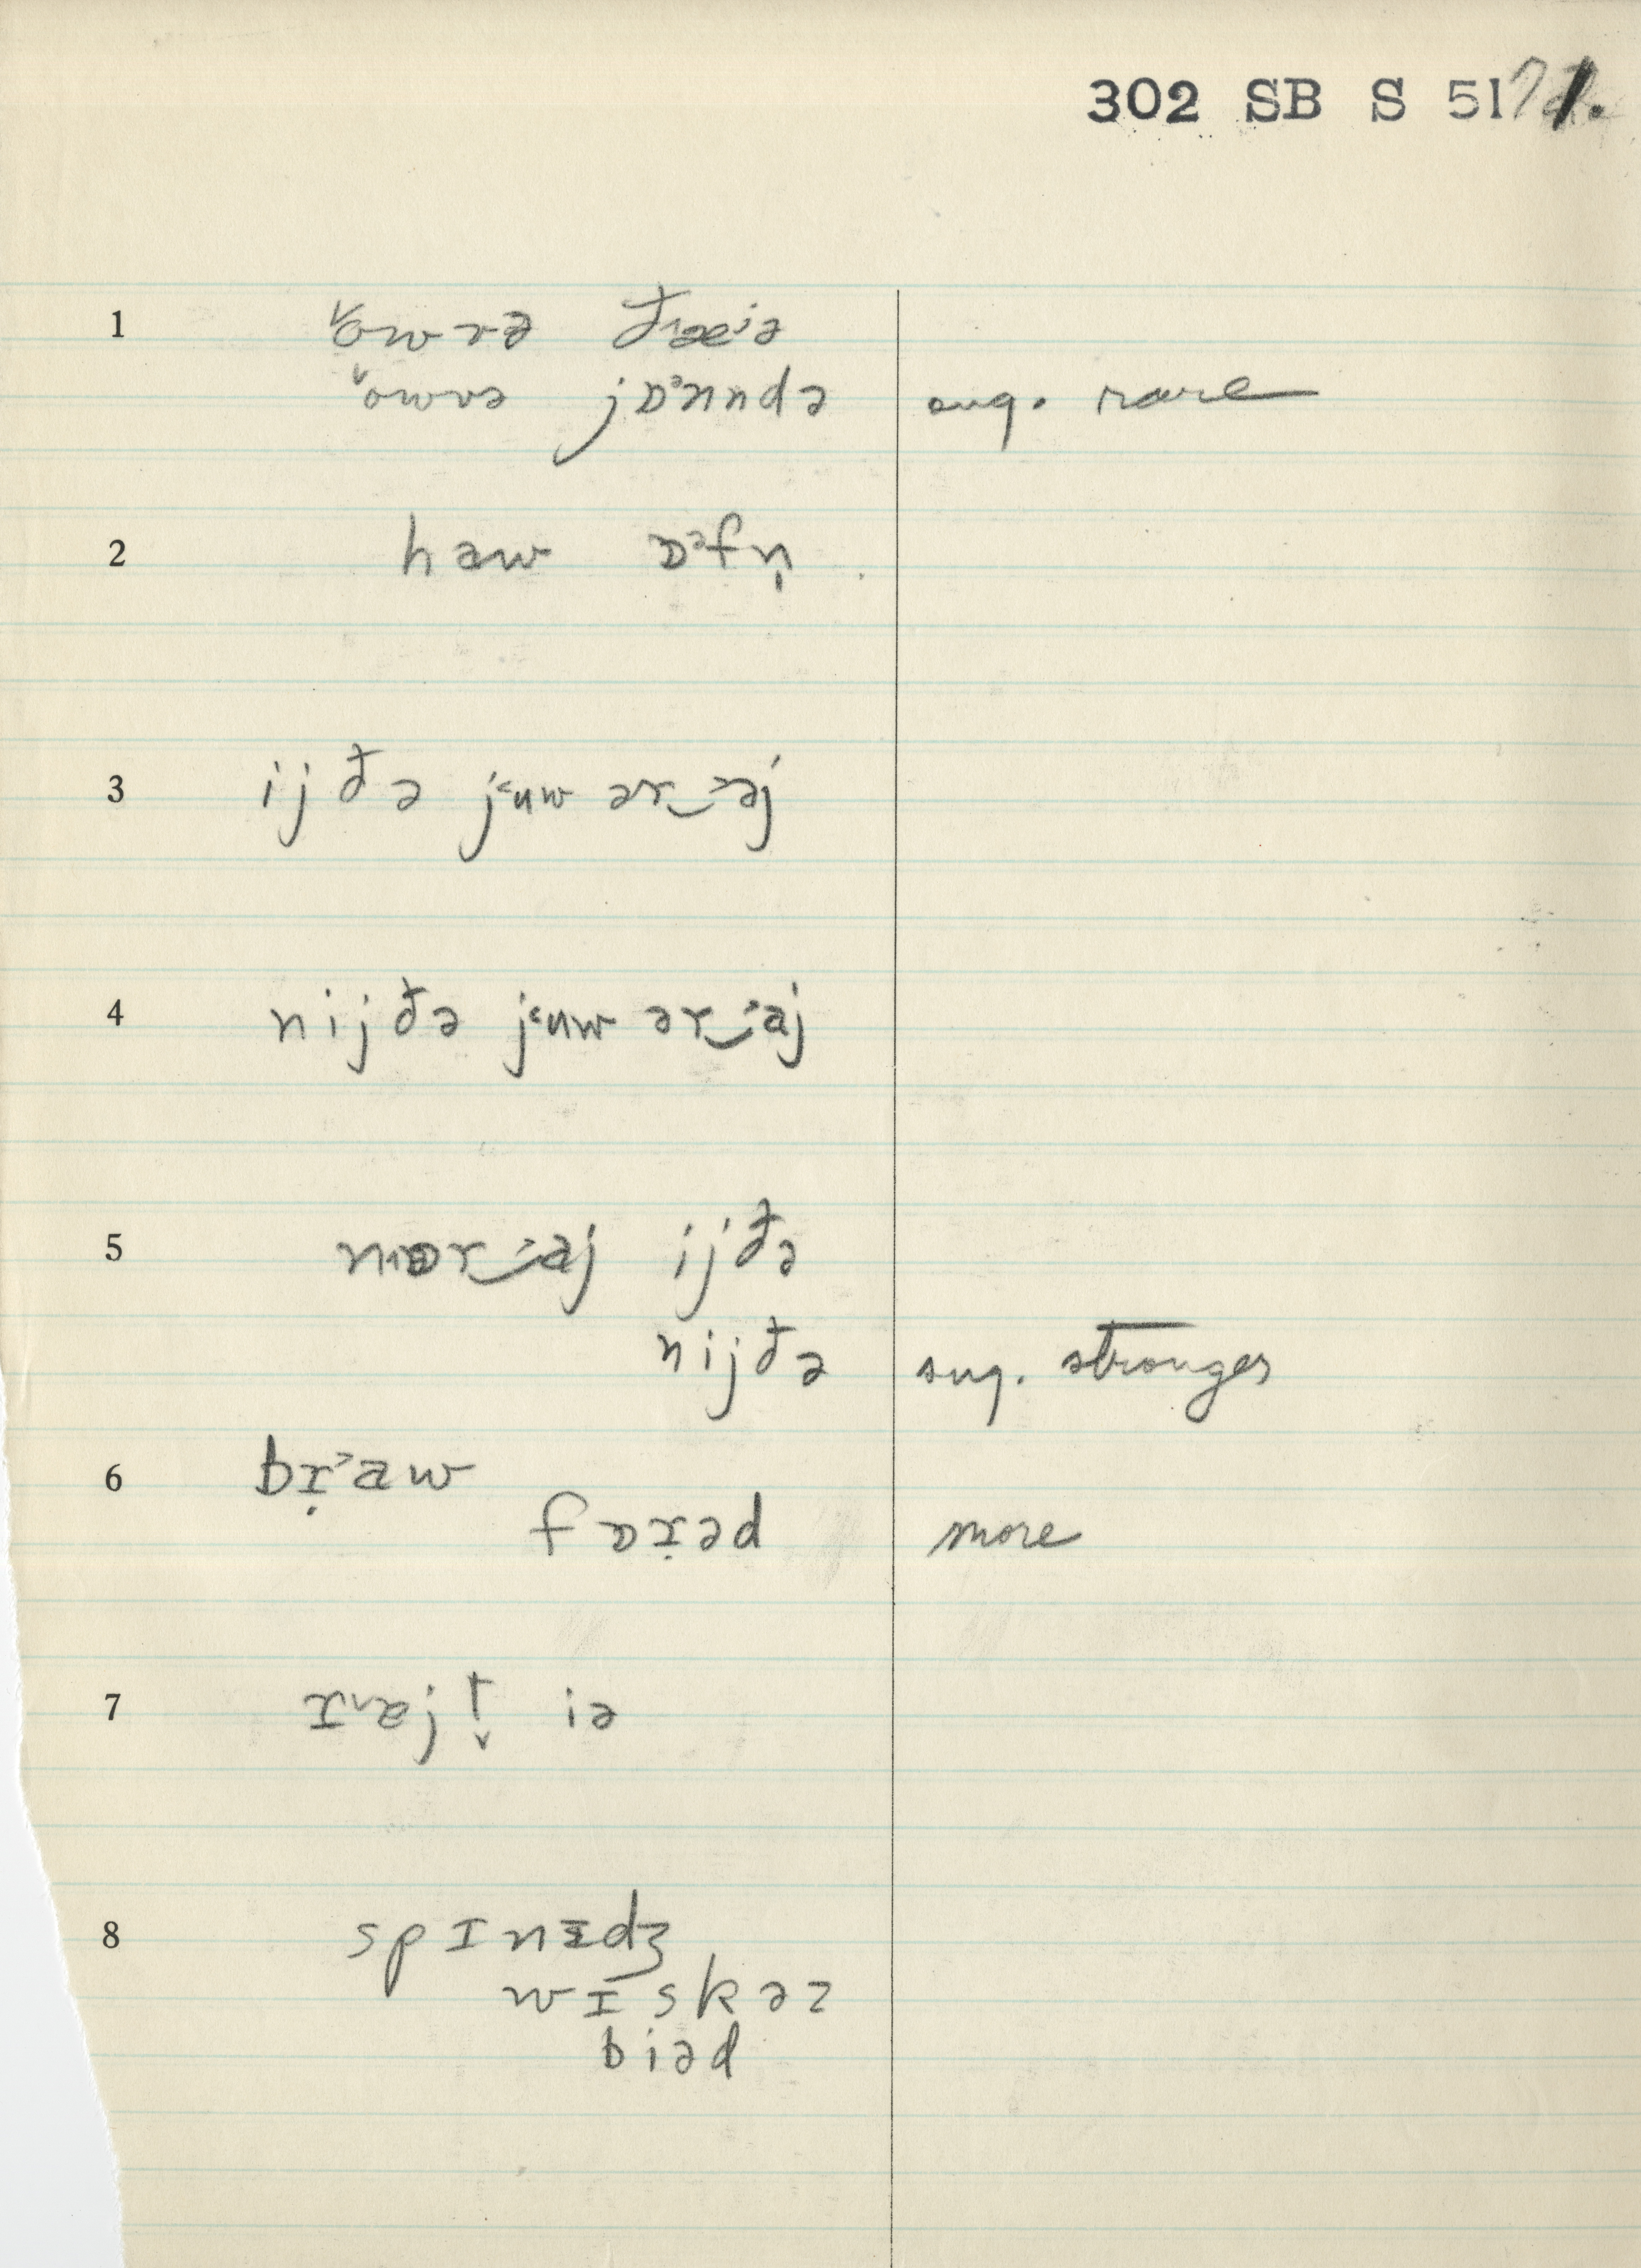 302 SB S 51
1 ˅owvə ðæ˖ə
˅owvə jɒᵊnndə sug. rare
2 haw ɒᵊfn̩
3 ijðə j˂ʉw ər‿˃aj
4 nijðə j˂ʉw ər‿˃aj
5 nər‿˃aj ijðə
nijðə sug. stronger
6 bɪ̣˃aw
fɒɪ̣əd more
7 ɪ˅æj! iə
8 spɪnɪdʒ
wɪskəz
biəd